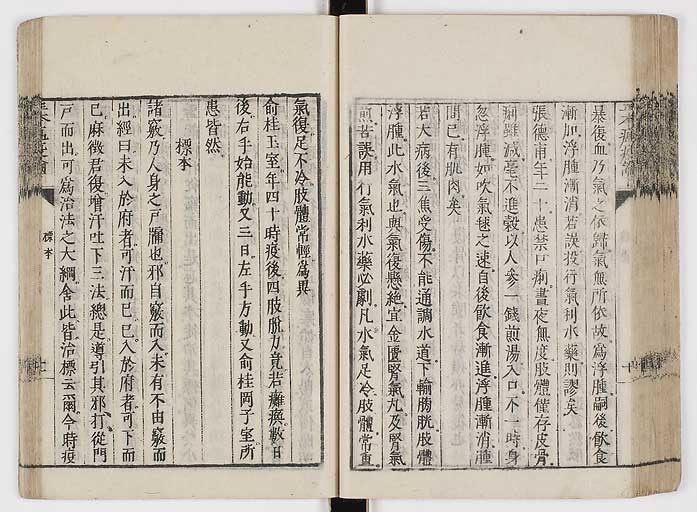 暴復血乃氣之依歸氣無所依故爲浮腫嗣後飲食
漸加浮腫漸消若誤投行氣利水藥則謬矣
張德甫年二十患禁口痢晝夜無度肢體僅存皮骨
痢雖減毫不進穀以人參一錢煎湯入口不一時身
忽浮腫如吹氣毬之速自後飲食漸進浮腫漸消腫
間已有肌肉矣
若大病後三焦受傷不能通調水道下輸膀胱肢體
浮腫此水氣也與氣復懸絕宜金匱腎氣丸及腎氣
煎若誤用行氣利水藥必劇凡水氣足冷肢體常重
氣復足不冷肢體常輕爲異
俞桂玉室年四十時疫後四肢脫力竟若癱瘓數日
後右手始能動又三日左手方動又俞桂岡子室所
患皆然
標本
諸竅乃人身之戸牖也邪自竅而入未有不由竅而
出經曰未入於府者可汗而已已入於府者可下而
已麻徵君復增汗吐下三法總是導引其邪打從門
戸而出可爲治法之大綱舍此皆治標云爾今時疫
標本